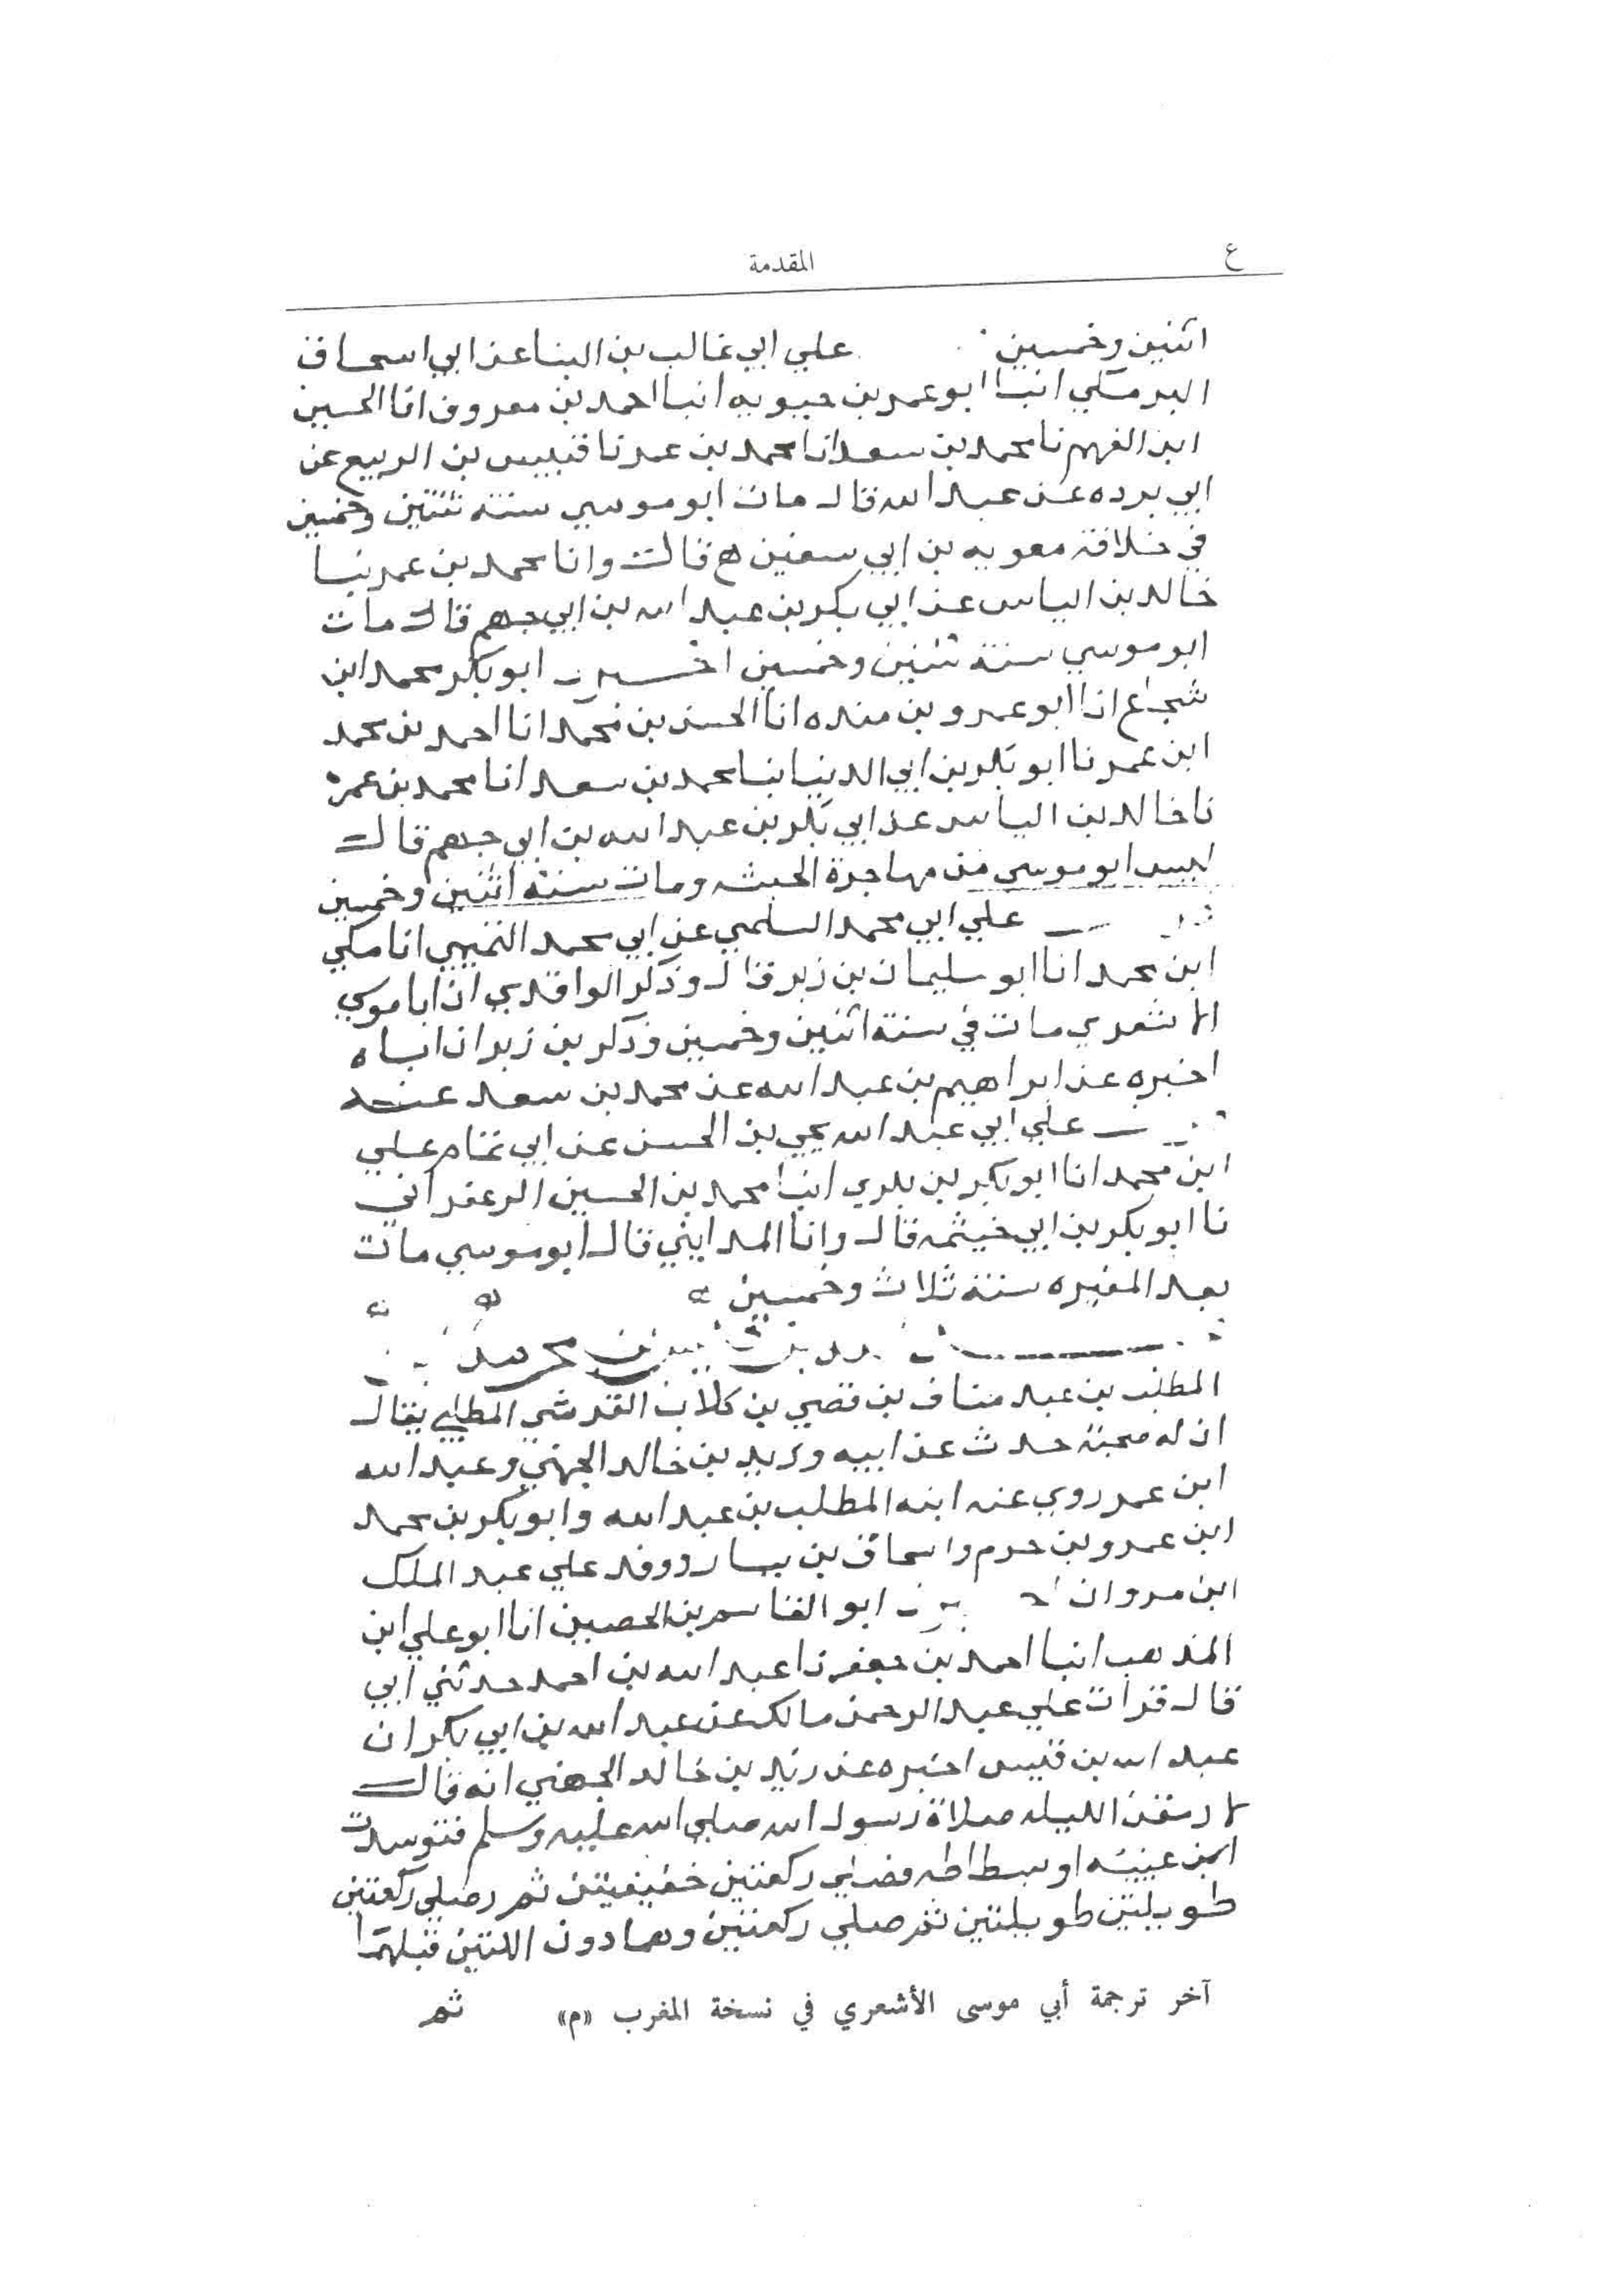 ع
المقدمة
اثنين وخمسين علي ابي غالب بن البنا عن ابي اسحاق
البرمكي انبا ابو عمر بن حيويه انبا احمد بن معروف انا الحسين
ابن الفهم نا محمد بن سعد انا محمد بن عمر نا قيس بن الربيع عن
ابي برده عن عبد الله قال مات ابو موسي سنه ثنتين وخمسين
في خلافة معويه بن ابي سفين ح قال وانا محمد بن عمر نبا
خالد بن الياس عن ابي بكر بن عبد الله بن ابي جهم قال مات
ابو موسي سنة ثنتين وخمسين ابو بكر محمد ابن
شجاع انا ابو عمرو بن منده انا الحسن بن محمد انا احمد بن محمد
ابن عمر نا ابو بكر بن ابي الدنيا نبا محمد بن سعد انا محمد بن عمر
نا خالد بن الياس عن ابي بكر بن عبد الله بن ابي جهم قال
ليس ابو موسي من مهاجرة الحبشه ومات سنه اثنين وخمسين
علي ابي محمد السلمي عن ابي محمد التميمي انا مكي
ابن محمد انا ابو سليمان بن زبر قال وذكر الواقدي ان ابا موسي
الاشعري مات في سنة اثنين وخمسين وذكر بن زبر ان اباه
اخبره عن ابراهيم بن عبد الله عن محمد بن سعد عنه
علي ابي عبد الله يحي بن الحسن عن ابي تمام علي
ابن محمد انا ابو بكر بن بلري انبا محمد بن الحسين الزعفراني
نا ابو بكر بن ابي خيثمه قال وانا المدايني قال ابو موسي مات
بعد المغيره سنة ثلاث وخمسين
المطلب بن عبد مناف بن قصي بن كلاب القرشي المطلبي يقال
ان له صحبة حدث عن ابيه وزيد بن خالد الجهني وعبد الله
ابن عمر روي عنه ابنه المطلب بن عبد الله وابو بكر بن محمد
ابن عمرو بن حزم واسحاق بن يسار ووفد علي عبد الملك
ابن مروان ابو القاسم بن الحصين انا ابو علي ابن
المذهب انبا احمد بن جعفر نا عبد الله بن احمد حدثني ابي
قال قرات علي عبد الرحمن مالك عن عبد الله بن ابي بكر ان
عبد الله بن قيس اخبره عن زيد بن خالد الجهني انه قال
لا رمقن الليله صلاة رسول الله صلي الله عليه وسلم فتوسدت
او فسطاطه فصلي ركعتين خفيفيتن ثم رصلي ركعتين
طويلتين طويلتين ثم صلي ركعتين وهما دون اللتين قبلهما
آخر ترجمة أبي موسى الأشعري في نسخة المغرب «م»
ثم